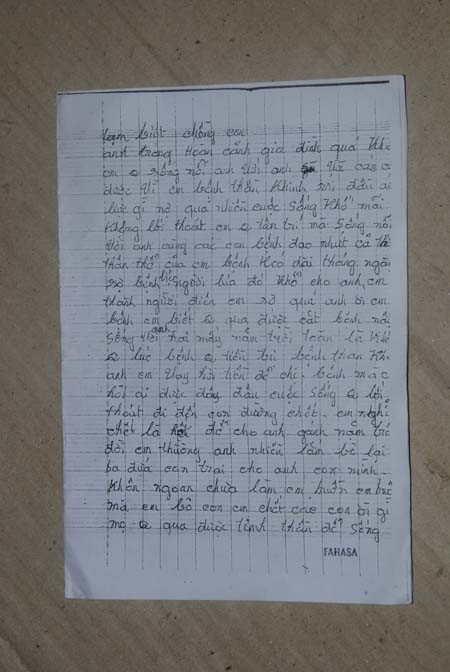 tạm biệt chồng con
anh trong hoàn cảnh gia đình quá khó
em sống nổi anh với anh và các
được vì em bệnh thần kinh rồi đầu ai
lực gì nợ quá nhiều cuộc sống khổ mãi
không lối thoát em tân trí mà sống nổi
với anh cùng các con bệnh đao nhứt cả
thân thể của em bệnh kéo dài tháng ngài
sợ bệnh người lúa đó khổ cho anh em
thành người điên em sợ quá anh ơi em
bệnh em biết qua được cắt bệnh nỗi
sống với anh hai mấy năm trời toàn là khổ
lúc bệnh tiền trị bệnh than khi
anh em vay hỏi tiền để chị bệnh mắc
hỏi ai được đây đầu cuộc sống lối
thoát đi đến con đường chết. em nghỉ
chết là để cho anh gánh nằm
đời em thường anh nhiều lắm bỏ lại
ba đứa con trai cho anh con mình
khôn ngoan chưa lắm em buồn em
mà em bỏ con em chết các con ơi gì
mẹ qua được tinh thần để sống
FAHASA